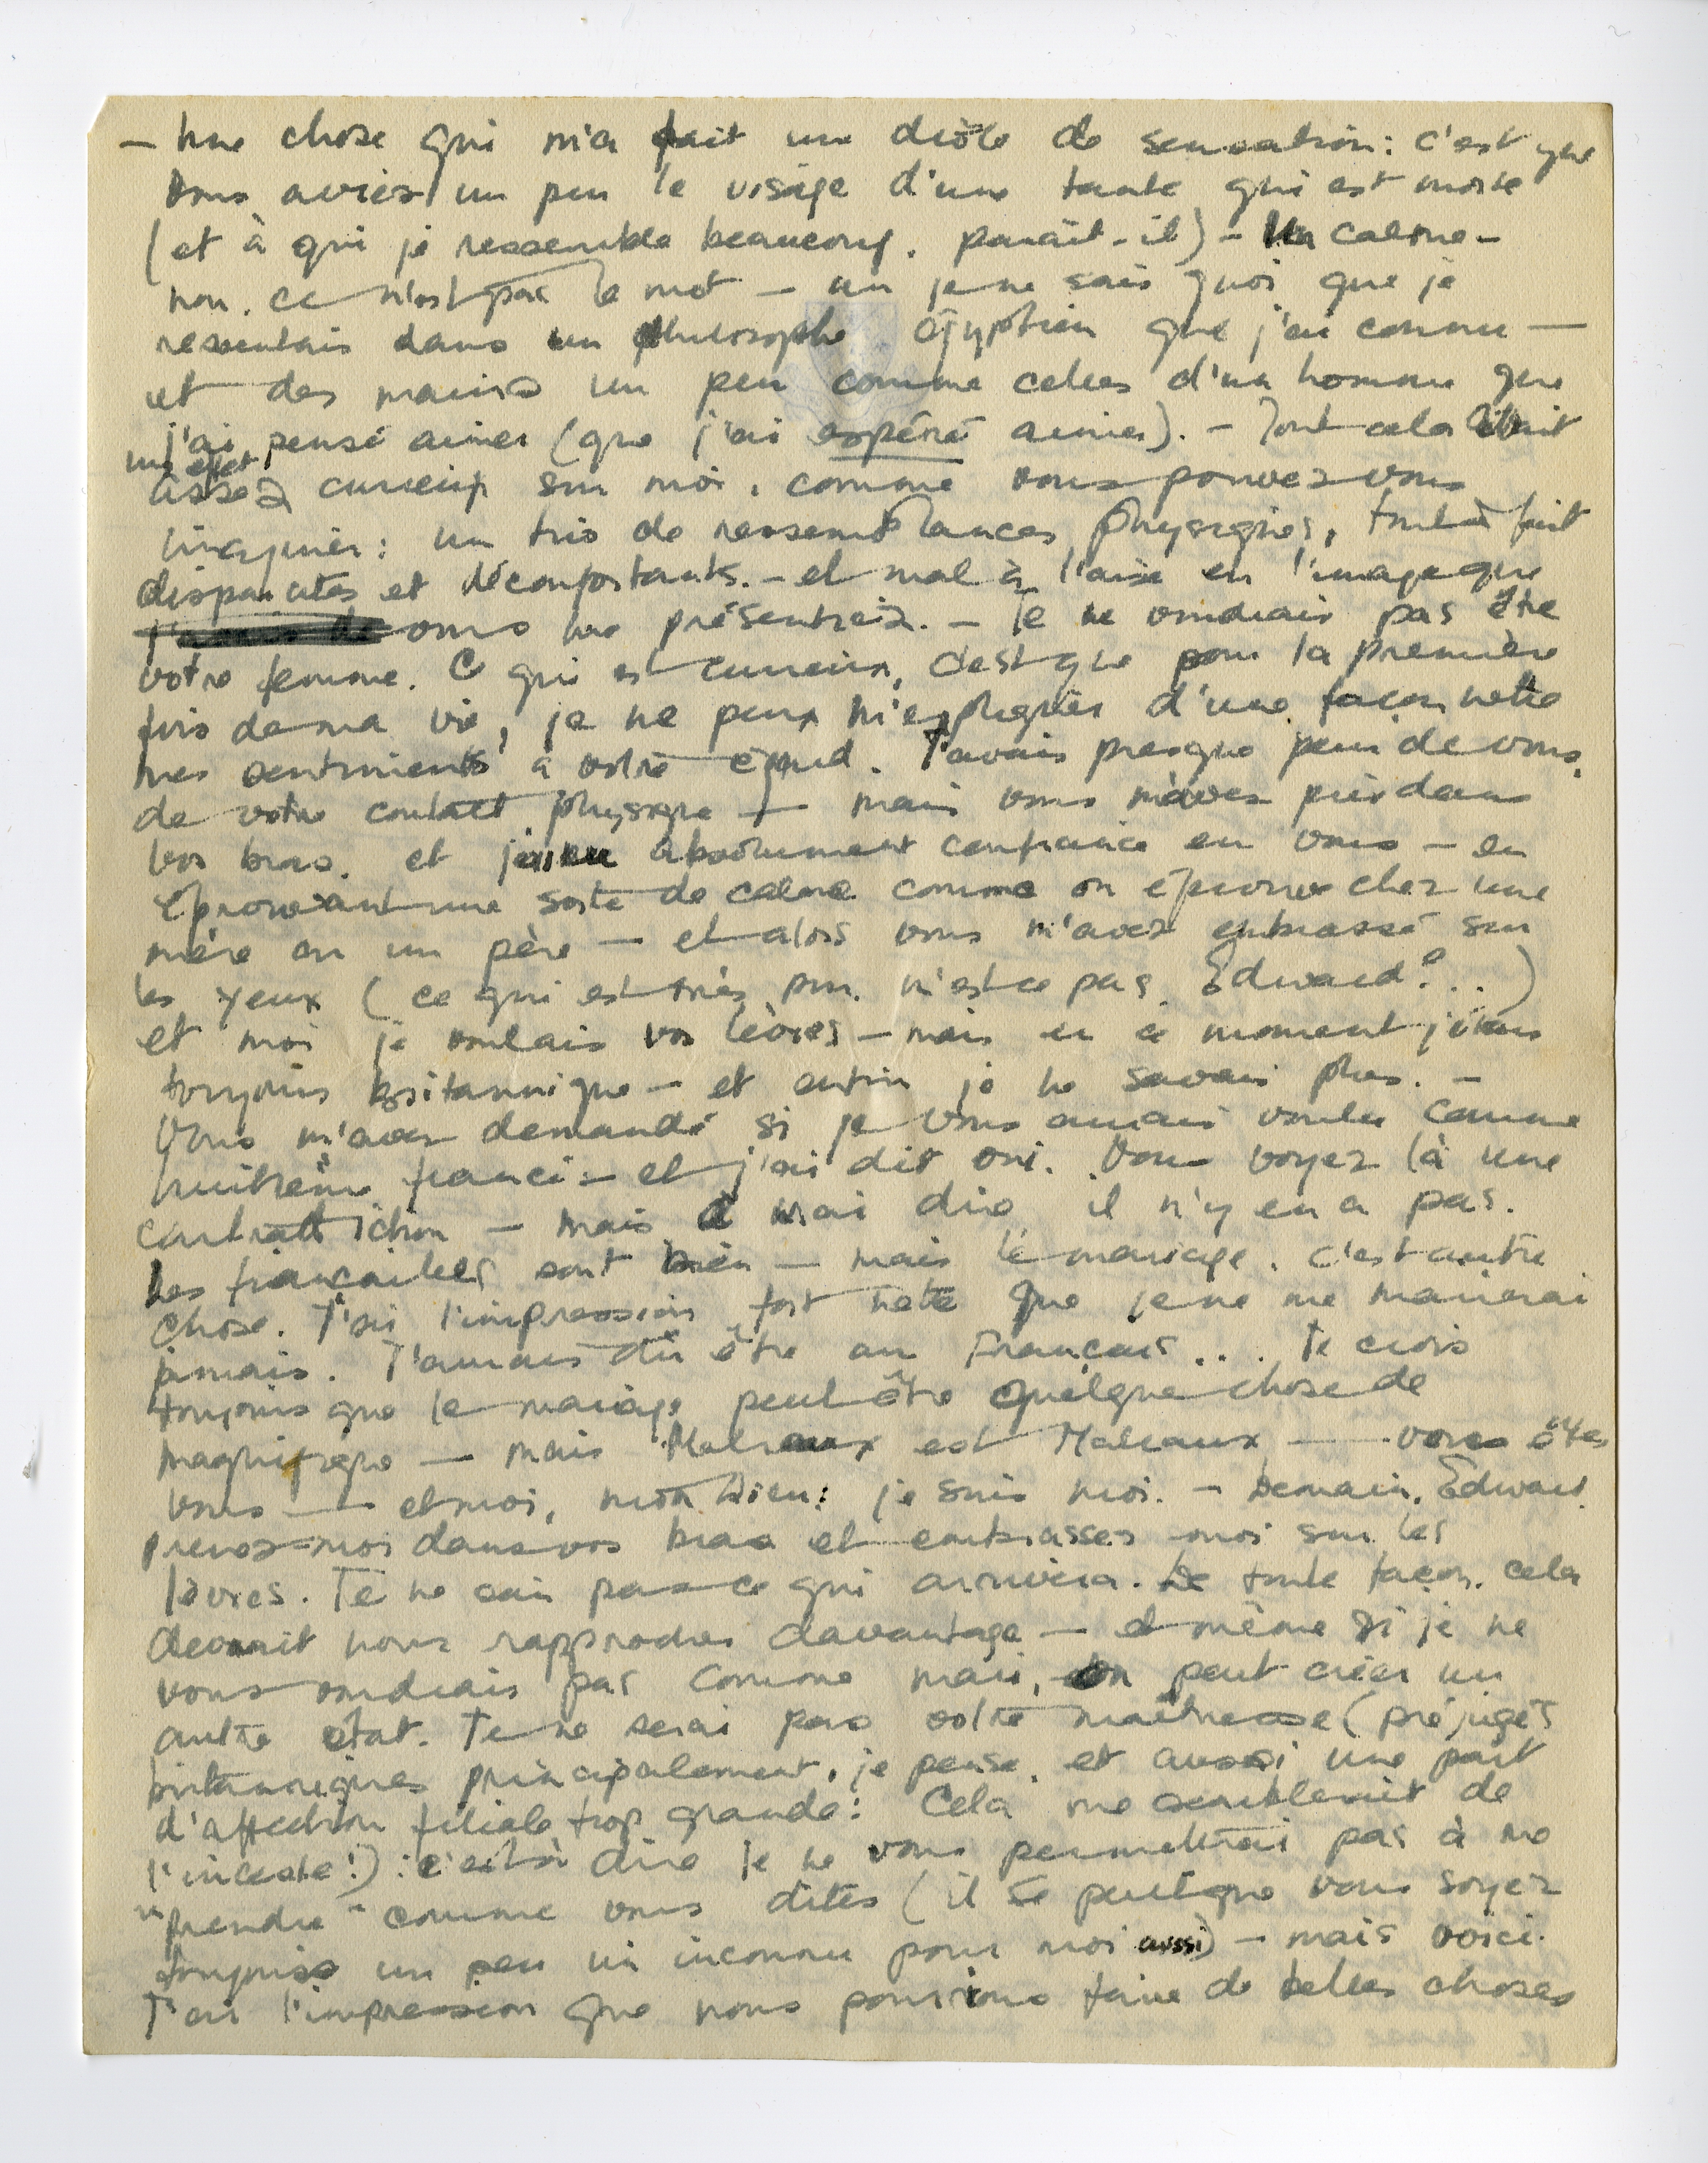 — Une chose qui m'a fait un drôle de sensation : c'est que
vous aviez un peu le visage d'une tante qui est morte
(et à qui je ressemble beaucoup, paraît-il) — Un calme —
non, ce n'est pas le mot — un je ne sais quoi que je
ressentais dans un philosophe égyptien que j'ai connu —
et des mains un peu comme celles d'un homme que
j'ai pensé aimer (que j'ai espéré aimer). — Tout cela
un effet
assez curieux sur moi, comme vous pouvez vous
imaginer : un trio de ressemblances physiques, tout à fait
disparates et déconfortants. — et mal à l'aise en l'image que
vous me présentiez. — Je ne voudrais pas être
votre femme. Ce qui est curieux, c'est que pour la première
fois de ma vie, je ne peux m'expliquer d'une façon nette
mes sentiments à votre égard. J'avais presque peur de vous,
de votre contact physique — mais vous m'avez pris dans
vos bras, et j'ai eu absolument confiance en vous — en
éprouvant une sorte de calme comme on éprouve chez une
mère ou un père — et alors vous m'avez embrassé sur
les yeux (ce qui est très pur, n'est-ce pas, Edward ? ..)
et moi je voulais vos lèvres — mais en ce moment j'étais
toujours britannique — et enfin je ne savais plus. —
Vous m'avez demandé si je vous aurais voulu comme
huitième fiancé — et j'ai dit oui. Vous voyez là une
contradiction — mais à vrai dire il n'y en a pas.
Les fiançailles sont bien — mais le mariage, c'est autre
chose. J'ai l'impression fort nette que je ne me marierai
jamais. J'aurais dû être au Français ... Je crois
toujours que le mariage peut être quelque chose de
magnifique — mais Malraux est Malraux — vous êtes
vous — et moi, mon Dieu : je suis moi. — Demain, Edward,
prenez-moi dans vos bras et embrassez-moi sur les
lèvres. Je ne sais pas ce qui arrivera. De toute façon, cela
devrait nous rapprocher davantage — et même si je ne
vous voudrais pas comme mari, on peut créer un
autre état. Je ne serai pas votre maîtresse (préjugés
britanniques principalement, je pense, et aussi une part
d'affection filiale trop grande : Cela me semblerait de
l'inceste !) : c'est à dire je ne vous permettrai pas à me
"prendre" comme vous dites (il se peut que vous soyez
toujours un peu un inconnu pour moi aussi) — mais voici.
J'ai l'impression que nous pourrions faire de belles choses